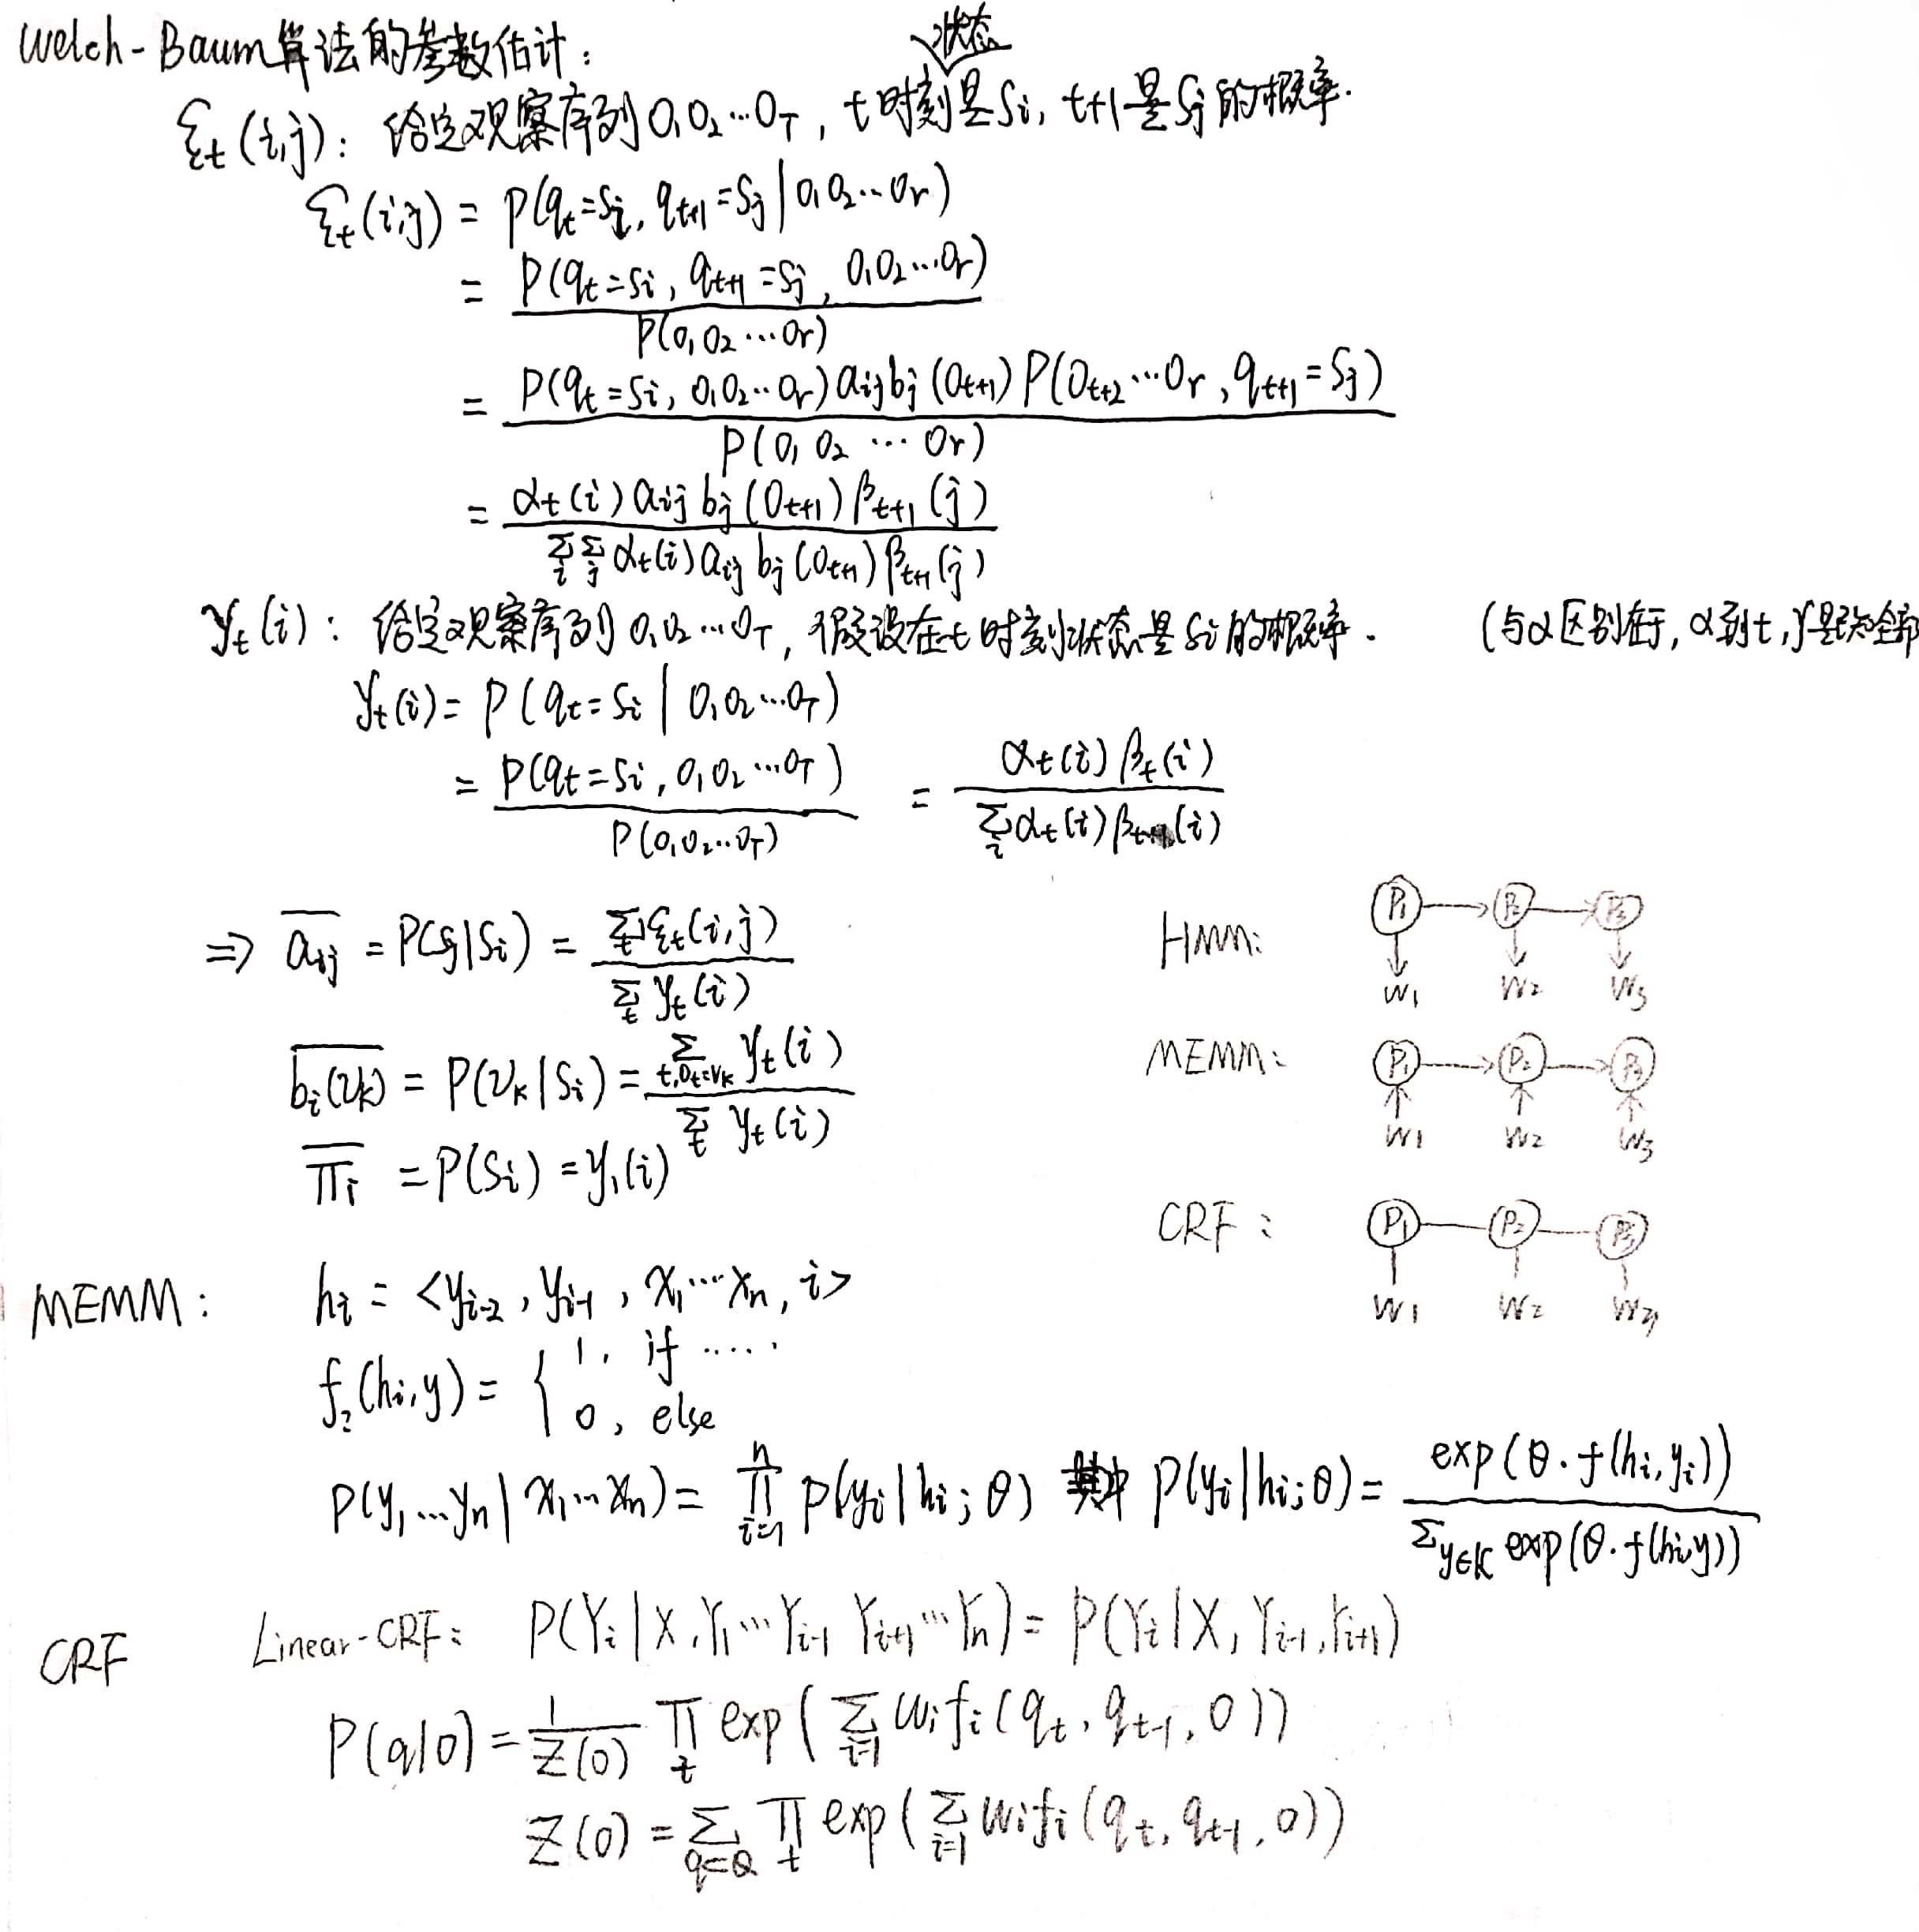 Welch-Baum算法的参数估计:
ξt(i,j): 给定观察序列O1O2…OT, t时刻状态是Si, t+1是Sj的概率.
ξt(i,j) = P(qt=Si, qt+1=Sj | O1O2…Or)
= P(qt=Si, qt+1=Sj, O1O2…Or) / P(O1O2…Or)
= P(qt=Si, O1O2…Or) aij bj(Ot+1) P(Ot+2…Or, qt+1=Sj) / P(O1O2…Or)
= αt(i) aij bj(Ot+1) βt+1(j) / Σi Σj αt(i) aij bj(Ot+1) βt+1(j)
γt(i): 给定观察序列O1O2…OT, 假设在t时刻状态是Si的概率. (与α区别在于, α到t, γ是已知全部
γt(i) = P(qt=Si | O1O2…OT)
= P(qt=Si, O1O2…OT) / P(O1O2…OT) = αt(i) βt(i) / Σi αt(i) βt(i)
⇒ aij = P(Sj|Si) = Σt ξt(i,j) / Σt γt(i)
bi(vk) = P(vk|Si) = Σt,Ot=vk γt(i) / Σt γt(i)
πi = P(Si) = γ1(i)
HMM: P1 → P2 → P3
W1 W2 W3
MEMM: P1 → P2 → P3
W1 W2 W3
CRF: P1 — P2 — P3
W1 W2 W3
MEMM: hi = <yi-2, yi-1, x1…xn, i>
f2(hi,y) = { 1, if …..
0, else
P(y1…yn | x1…xn) = Π i=1 n P(yi|hi;θ) 其中 P(yi|hi;θ) = exp(θ·f(hi,yi)) / Σy∈K exp(θ·f(hi,y))
CRF Linear-CRF: P(Yi|X,Y1…Yi-1 Yi+1…Yn) = P(Yi|X,Yi-1,Yi+1)
P(q|O) = 1/Z(O) Πt exp(Σi=1 wifi(qt, qt-1, O))
Z(O) = Σq∈Q Πt exp(Σi=1 wifi(qt, qt-1, O))